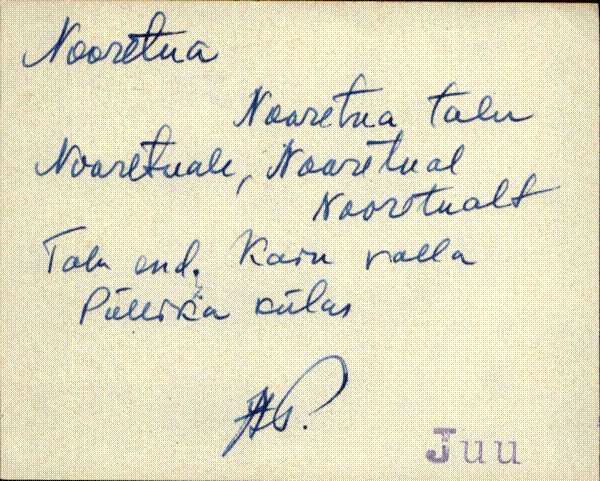 Nooretua
Nooretua talu
Nooretuale, Nooretual
Nooretualt
Talu end. Kaiu valla
Põlliku külas
Juu